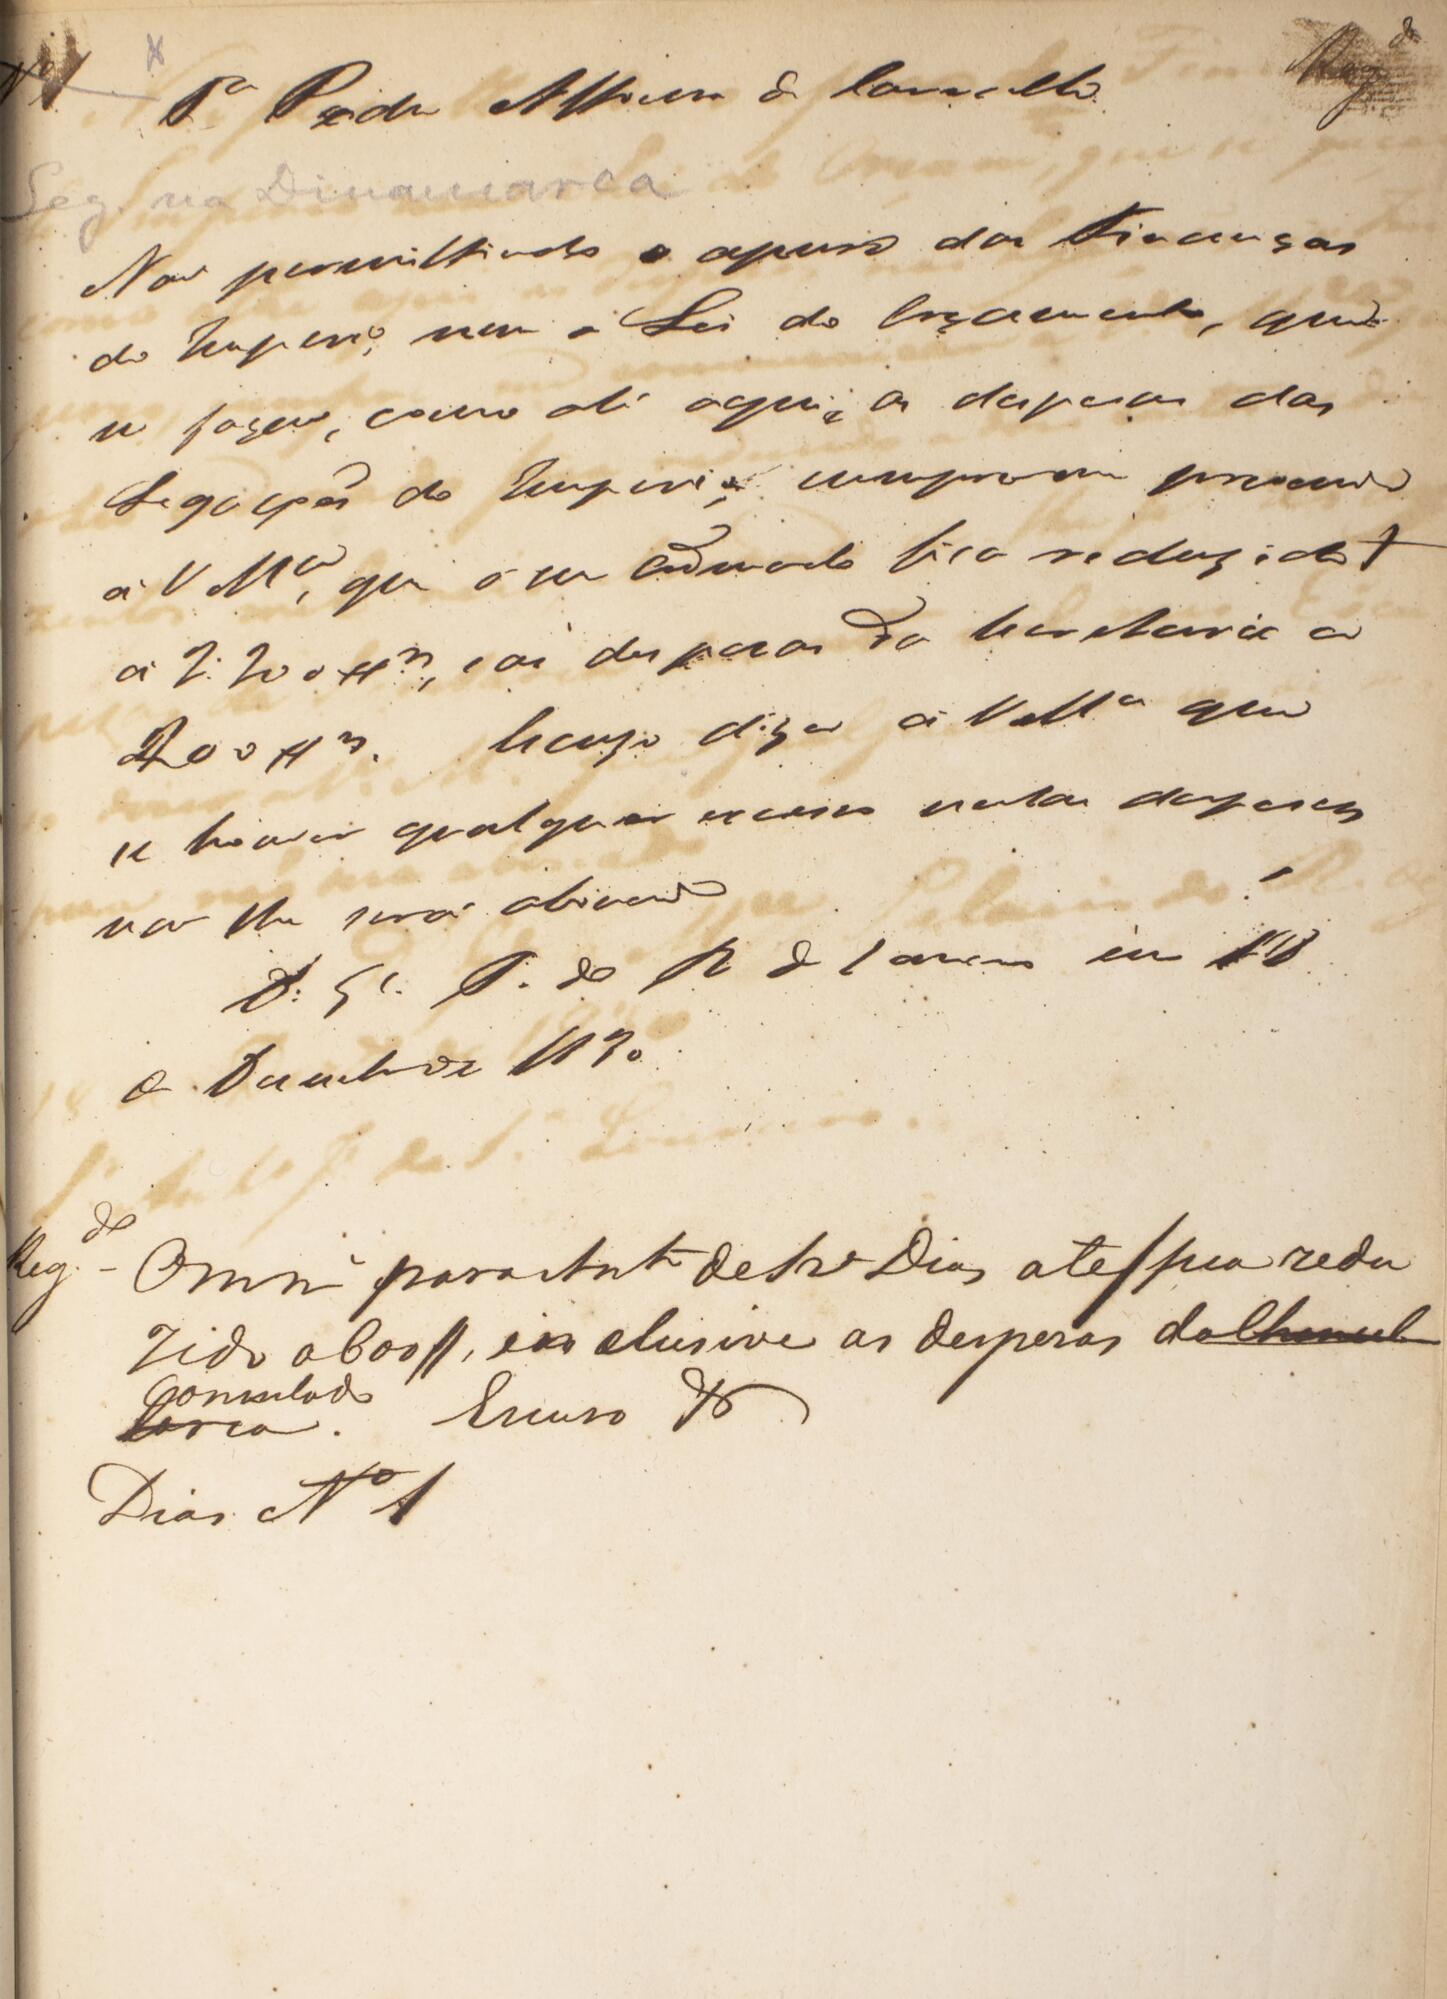 Nº 1 X
Pª Pedro Affonso de Carvalho Regdo
Leg. na Dinamarca
Não permittindo o apuro das Finanças
do Imperio, nem a Lei do Orçamento, que
se fação, como até aqui, as despesas das
Legações do Imperio, cumpre-me prevenir
a V Mce, que o seu Ordenado fica reduzido
a , e as despesas da Secretaria a
. Escuso dizer a V Mce que
se houver qualquer excesso nestas despesas
não lhe será abonado
D. Ge. P. do R de Janeiro em 18
de Dezembro de 1830
Regdo - O mmo para Anto de Sza Dias até fica redu
zido a 600$, inclusive as despesas da Chancel
Consulado
laria. Escuso &
Dias Nº 1